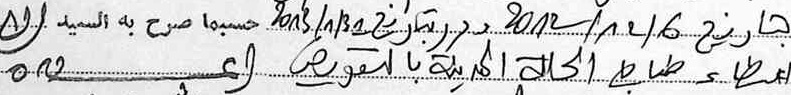 بتاريخ 2012/12/6 وبتاريخ 2013/1/31 حسبما صرح به السيد
اعطاء ضابط الحالة المدنية بالتفويض